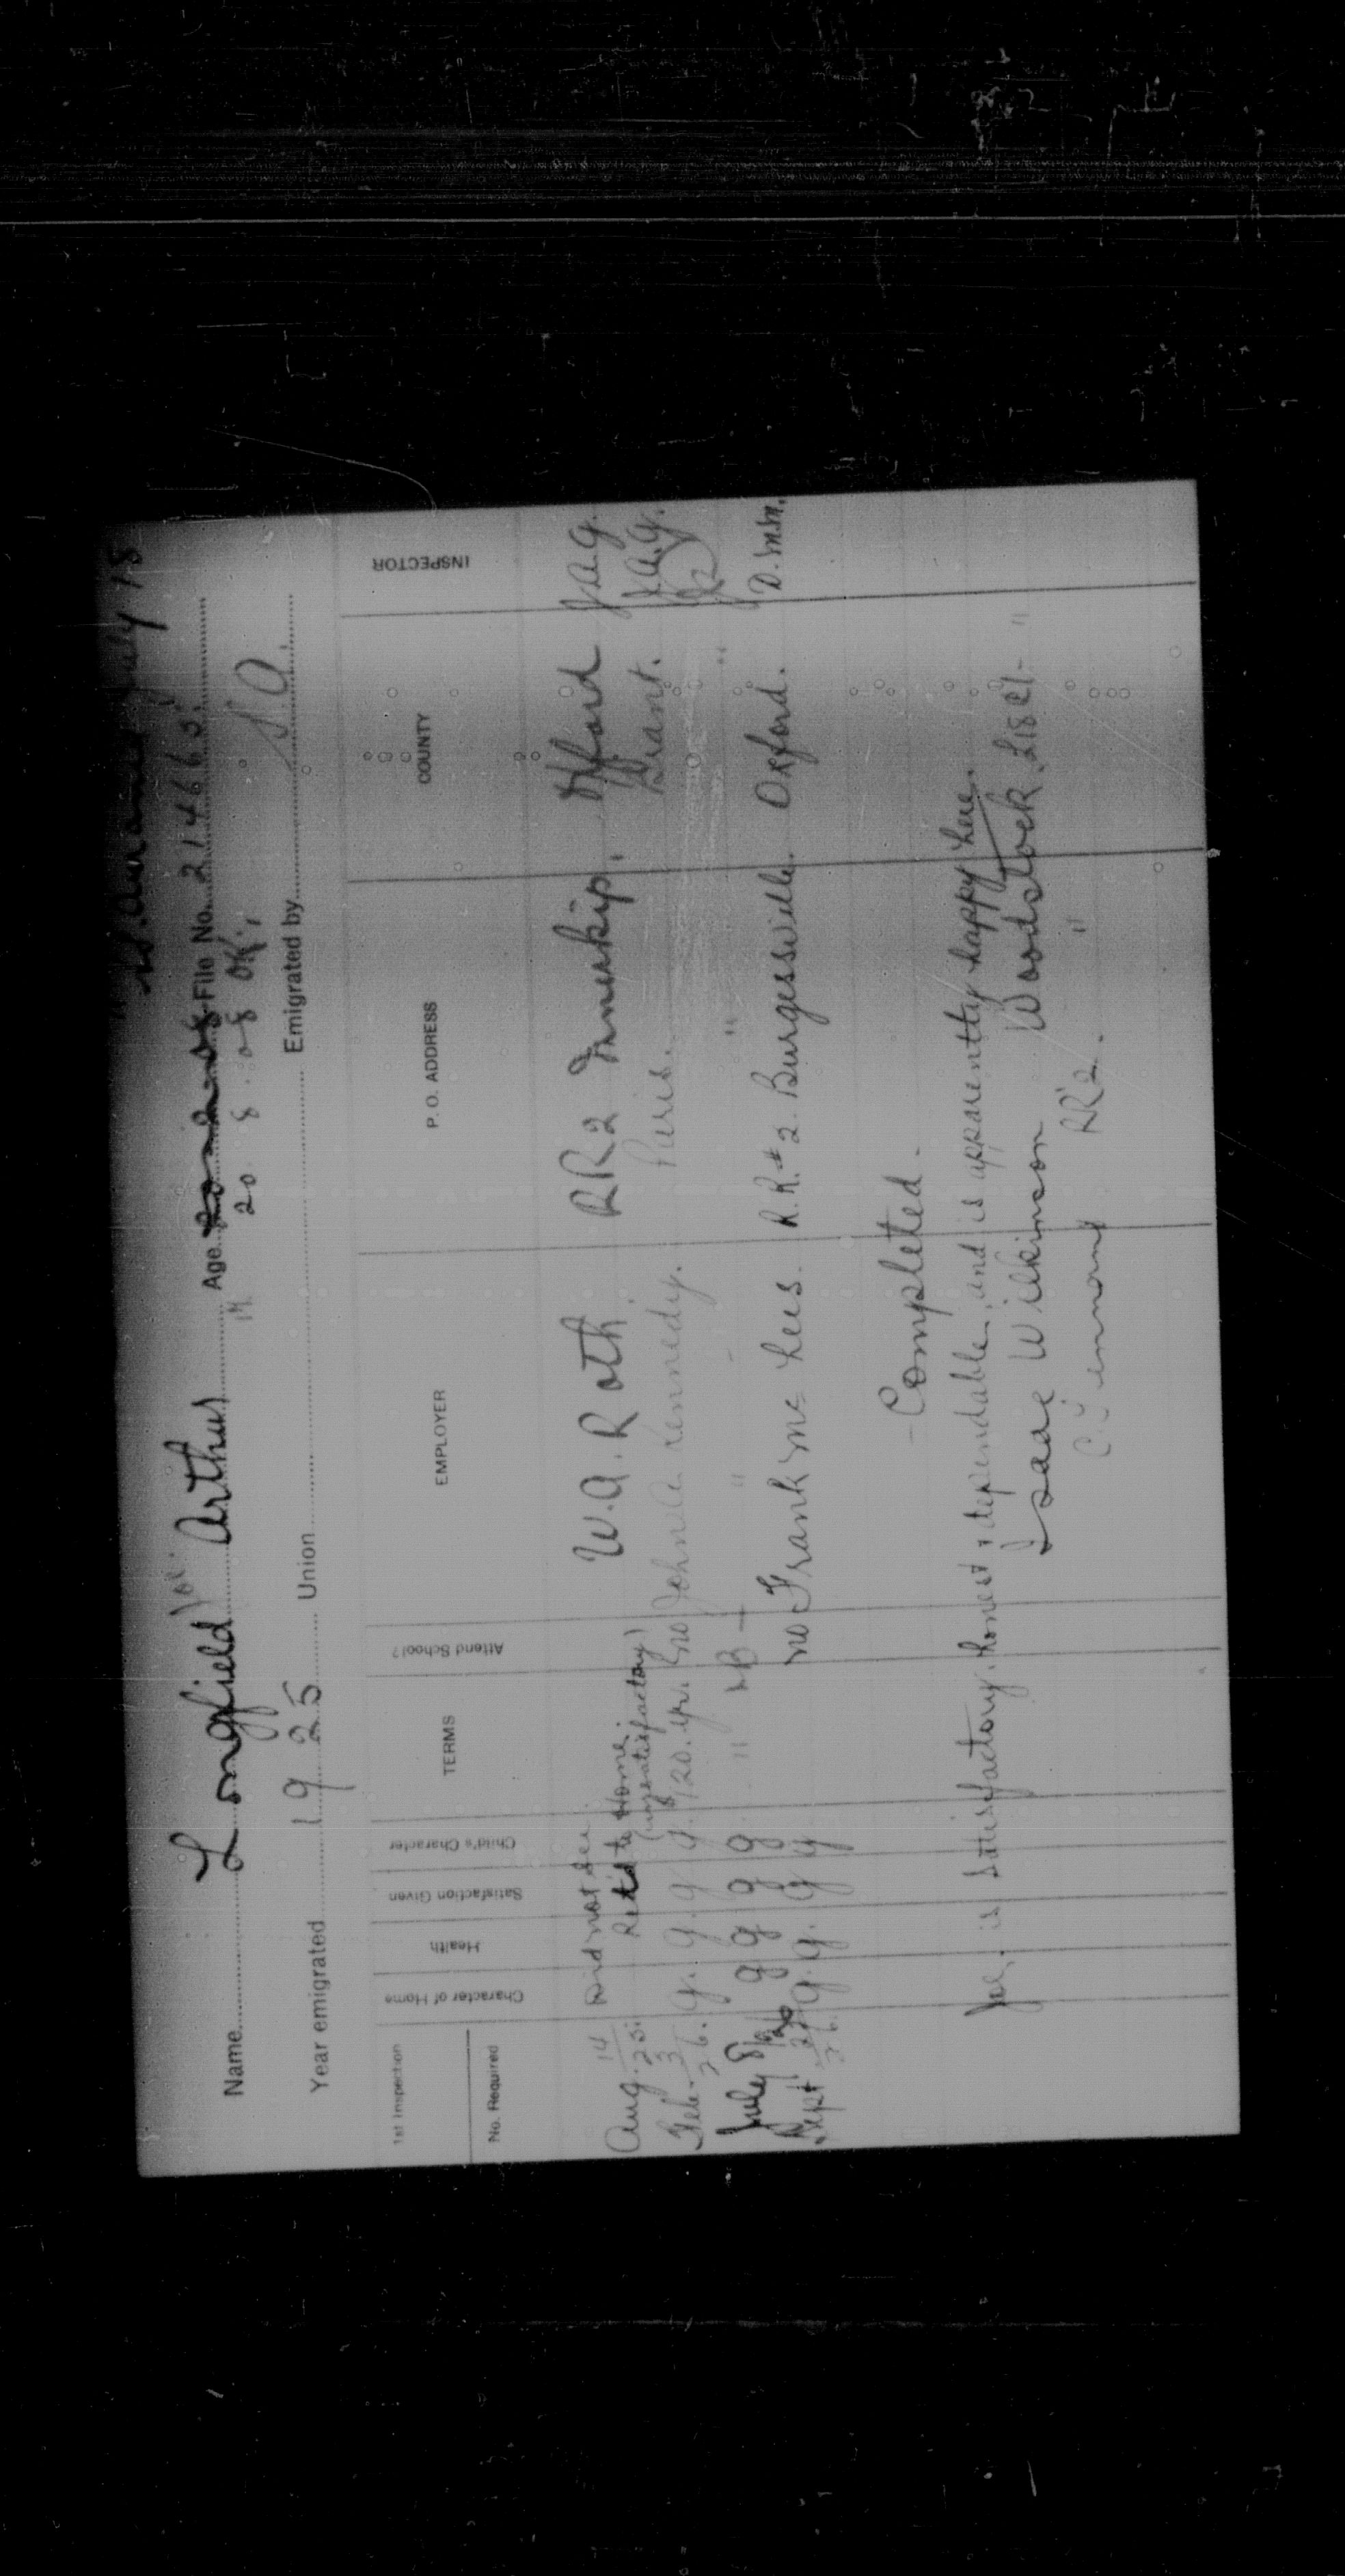 July 18
Name Longfield Arthur Age File No. 214665
Joe. 14 20 8 08 OK.
Year emigrated 1925 Union Emigrated by S.A.
1st Inspection
No. Required
Character of Home Health Satisfaction Given Child's Character TERMS Attend School? EMPLOYER P. O. ADDRESS COUNTY INSPECTOR
Aug. 14/25. Did not see W. A. Roth RR 2 Innerkip. Oxford J.A.G.
Ret'd to Home.
(unsatisfactory)
Feb. 3/26. g. g. g g. $120. yr. no John A. Kennedy. Paris. Brant. J.A.G.
July 8/26 g g g g " " " "
Sept 27/26. g. g. g g no Frank Mc Lees. R.R.#2. Burgessville. Oxford. D.M.M.
- Completed -
Joe, is satisfactory, honest & dependable, and is apparently happy here.
Isaac Wilkinson Woodstock "
RR2. "